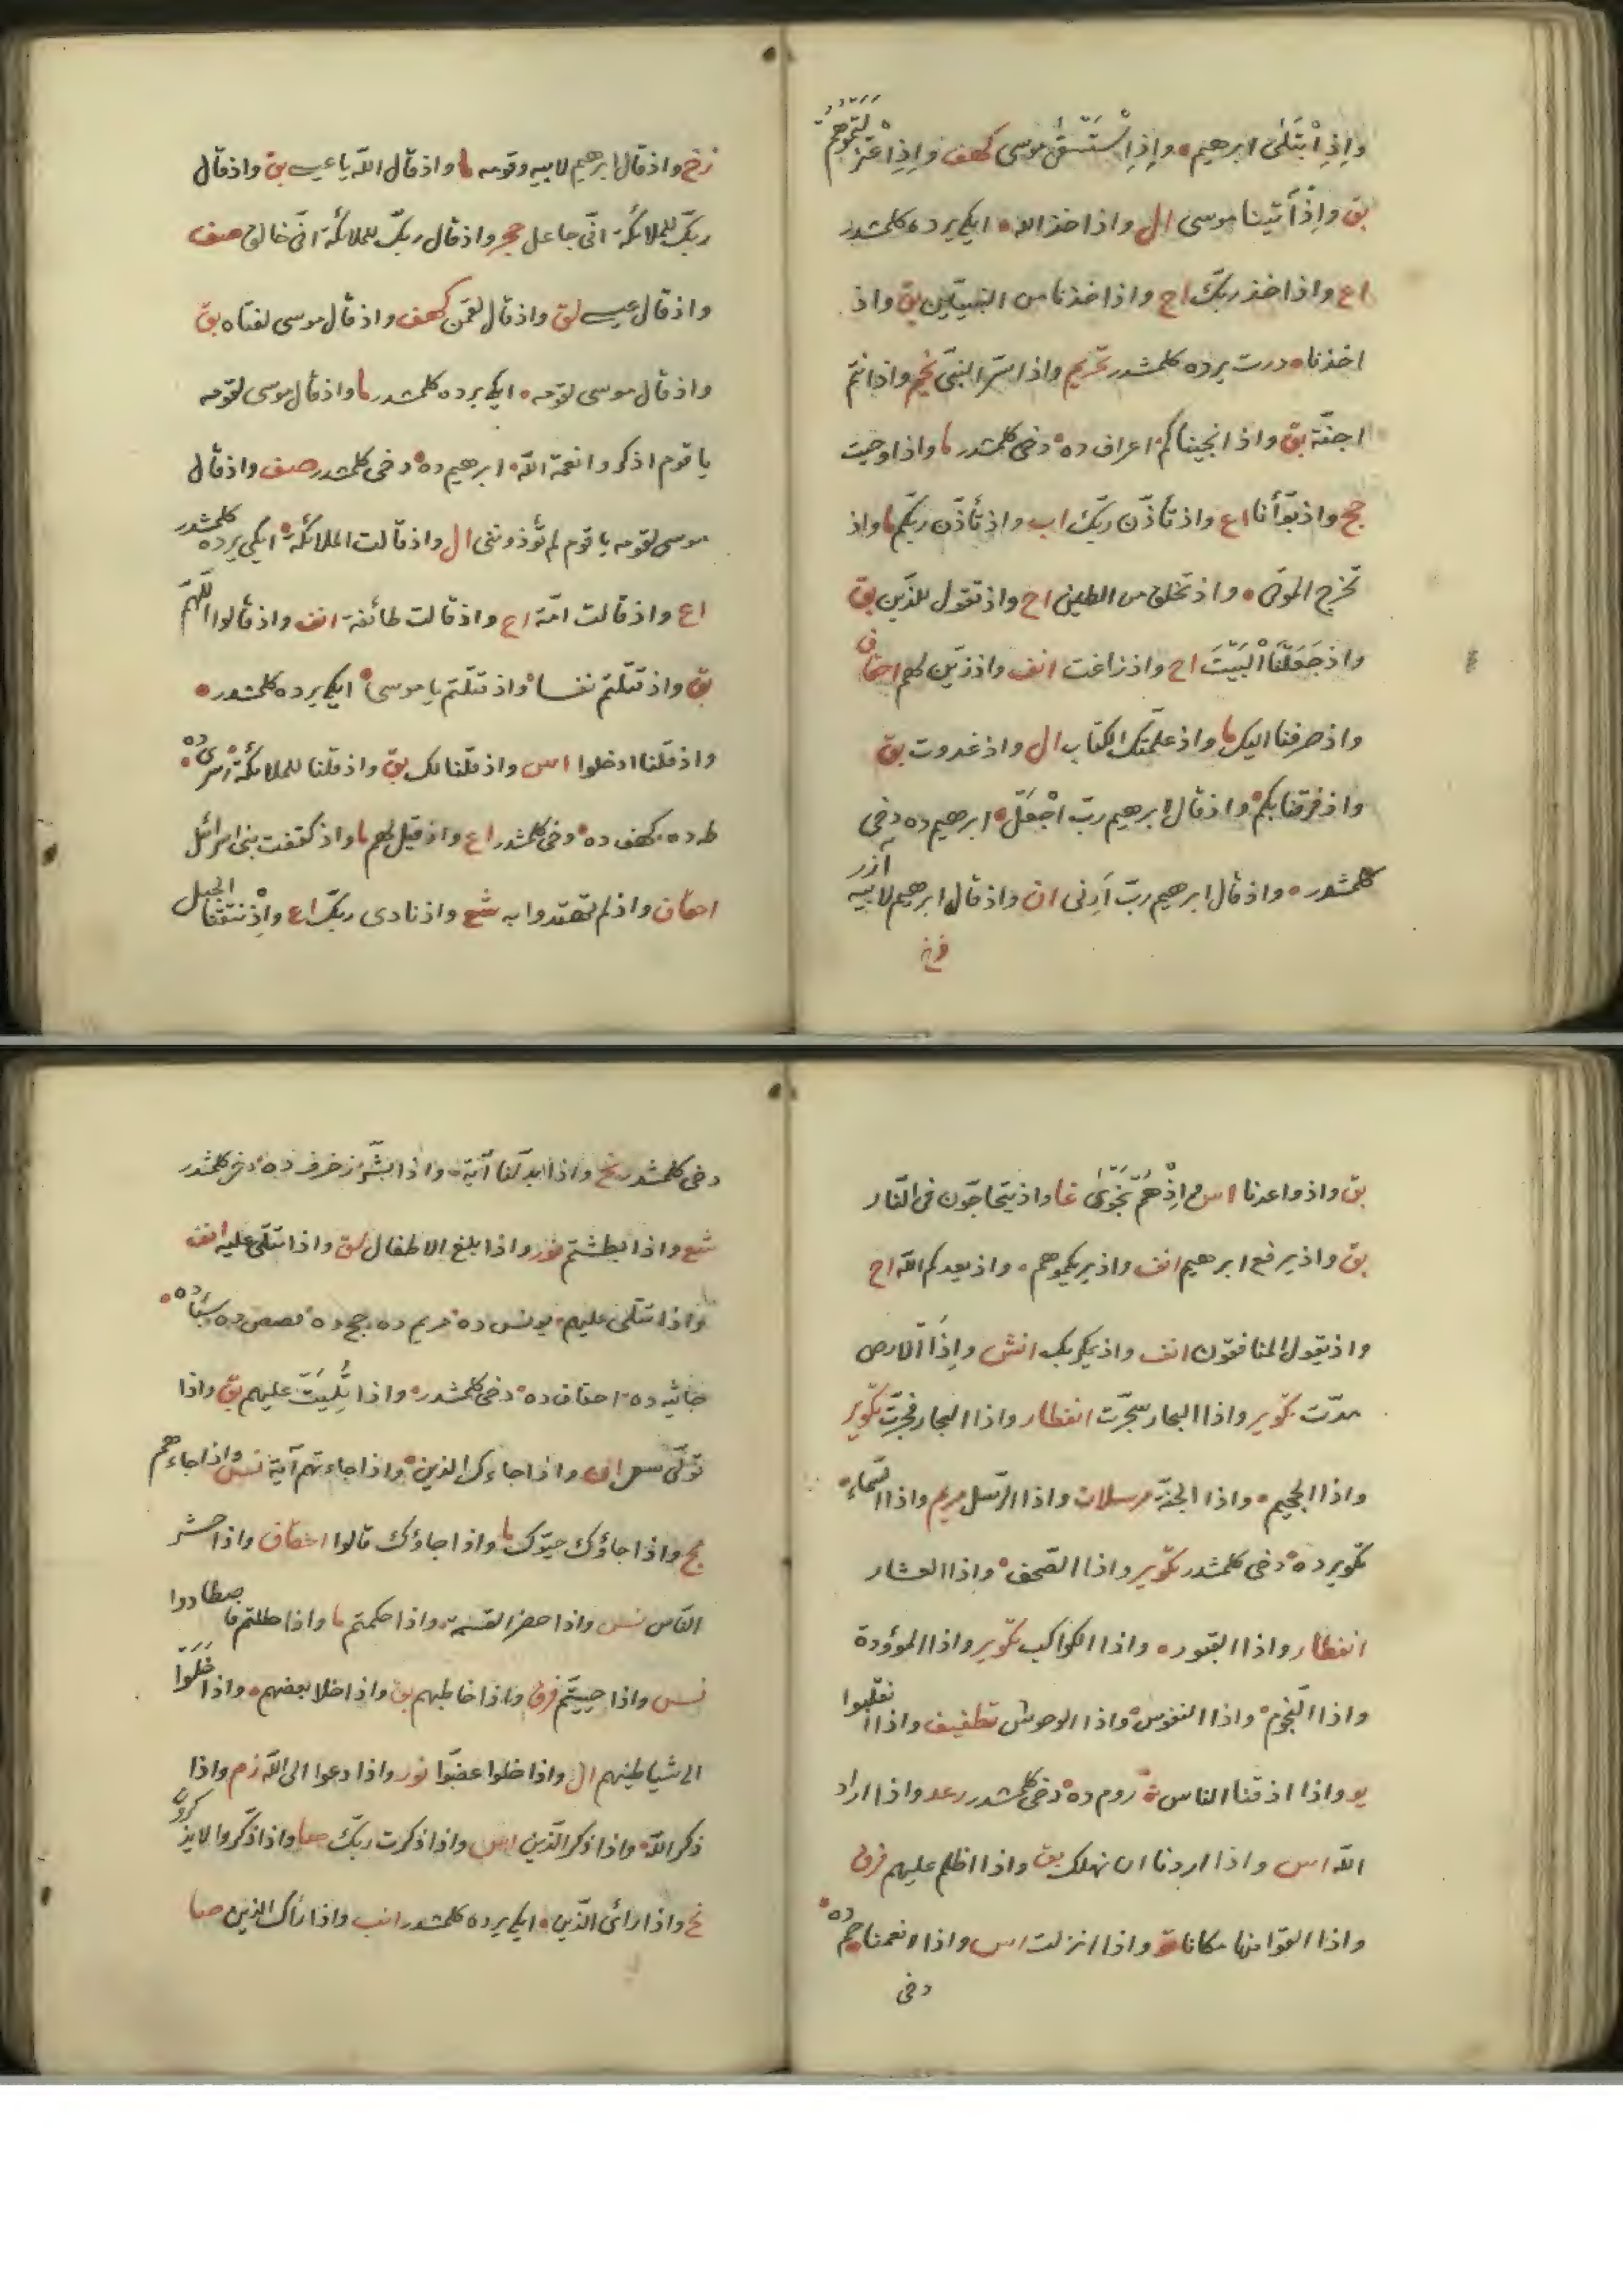 واِذِ اْبتَلىٰ ابرهيم واِذِ اسْتَسْقىٰ موسى كهف واِذِ اعْتزلتموهم
بق واِذْ آتينا موسى ال واذ اخذ الله ايكى يرده كلمشدر
اع واذ اخذ ربّك اح واذ اخذنا من النبيّين بق واذ
اخذنا درت يرده كلمشدر تحريم واذ اسرّ النبىّ نجم واذ انتم
اجنّة بق واذ انجيناكم اعراف ده دخى كلمشدر ما واذ اوحيت
حج واذ بوّأنا اع واذ تأذّن ربّك اب واذ تأذّن ربّكم ما واذ
تخرج الموتى واذ تخلق من الطين اح واذ تقول للذّين بق
واذ جَعَلْنَا الْبَيْتَ اح واذ زاغت انف واذ زيّن لهم احقاف
واذ صرفنا اليك ما واذ علّمتك الكتاب ال واذ غدوت بق
واذ فرقنا بكم واذ قال ابرهيم ربّ اجْعَلْ ابرهيم ده دخى
كلمشدر واذ قال ابرهيم ربّ اَرِنى ان واذ قال ابرهيم لابيه آزر
زخ
زخ واذ قال ابرهيم لابيه وقومه ما واذ قال الله يا عيسى بق واذ قال
ربّك للملائكة انّى جاعل حجر واذ قال ربّك للملائكة انّى خالق صف
واذ قال عيسى لق واذ قال لقمن كهف واذ قال موسى لفتاه بق
واذ قال موسى لقومه ايكى يرده كلمشدر ما واذ قال موسى لقومه
يا قوم اذكروا نعمة الله ابرهيم ده دخى كلمشدر صف واذ قال
موسى لقومه يا قوم لم تؤذوننى ال واذ قالت الملائكة ايكى يرده كلمشدر
اع واذ قالت امّة اح واذ قالت طائفة انف واذ قالوا اللّهمّ
بق واذ قتلتم نفسا واذ قلتم يا موسى ايكى يرده كلمشدر
واذ قلنا ادخلوا اس واذ قلنا لك بق واذ قلنا للملائكة اسرى ده
طه ده كهف ده دخى كلمشدر اع واذ قيل لهم ما واذ كففت بنى اسرائل
احقاف واذ لم يهتدوا به شع واذ نادى ربّك اع واِذْ نتقنا الجبل
بق واذ واعدنا اس واِذْ هُمْ نَجْوىٰ غا واذ يتحاجّون فى النّار
بق واذ يرفع ابرهيم انف واذ يريكموهم واذ يعدكم الله اح
واذ يقول المنافقون انف واذ يمكر بك انش واِذَا الارض
مدّت تكوير واذا البحار سجّرت انفطار واذا البحار فجّرت تكوير
واذا الجحيم واذا الجنّة مرسلات واذا الرّسل مريم واذا السّماء
تكوير ده دخى كلمشدر تكوير واذا الصّحف واذا العشار
انفطار واذا القبور واذا الكواكب تكوير واذا الموؤدة
واذا النّجوم واذا النفوس واذا الوحوش تطفيف واذا انقلبوا
يو واذا اذقنا الناس روم ده دخى كلمشدر رعد واذا اراد
الله اس واذا اردنا ان نهلك بق واذا اظلم عليهم فرق
واذا القوا منها مكانا واذا انزلت اس واذا انعمنا ده
دخى
دخى كلمشدر نح واذا بدّلنا آية واذا بشّر زخرف ده دخى كلمشدر
شع واذا بطشتم نور واذا بلغ الاطفال لق واذا تتلى عليه انف
واذا تتلى عليهم يونس ده مريم ده حج ده قصص ده سبأ ده
جاثيه ده احقاف ده دخى كلمشدر واذا تُلِيَتْ عليهم بق واذا
تولّى سعى ان واذا جاءك الذين واذا جاءتهم آية نس واذا جاءهم
مج واذا جاؤك حيّوك ما واذا جاؤك قالوا احقاف واذا حشر
النّاس نس واذا حضر القسمة واذا حكمتم ما واذا حللتم فاصطادوا
نس واذا حييّتم فرق واذا خاطبهم بق واذا خلا بعضهم واذا خَلَوْا
الى شياطينهم ال واذا خلوا عضّوا نور واذا دعوا الى الله زم واذا
ذكر الله واذا ذكر الّذين اس واذا ذكرت ربّك صا واذا ذكّروا لا يذكرون
نح واذا رائ الذّين ايكى يرده كلمشدر انب واذا رآك الذين صا